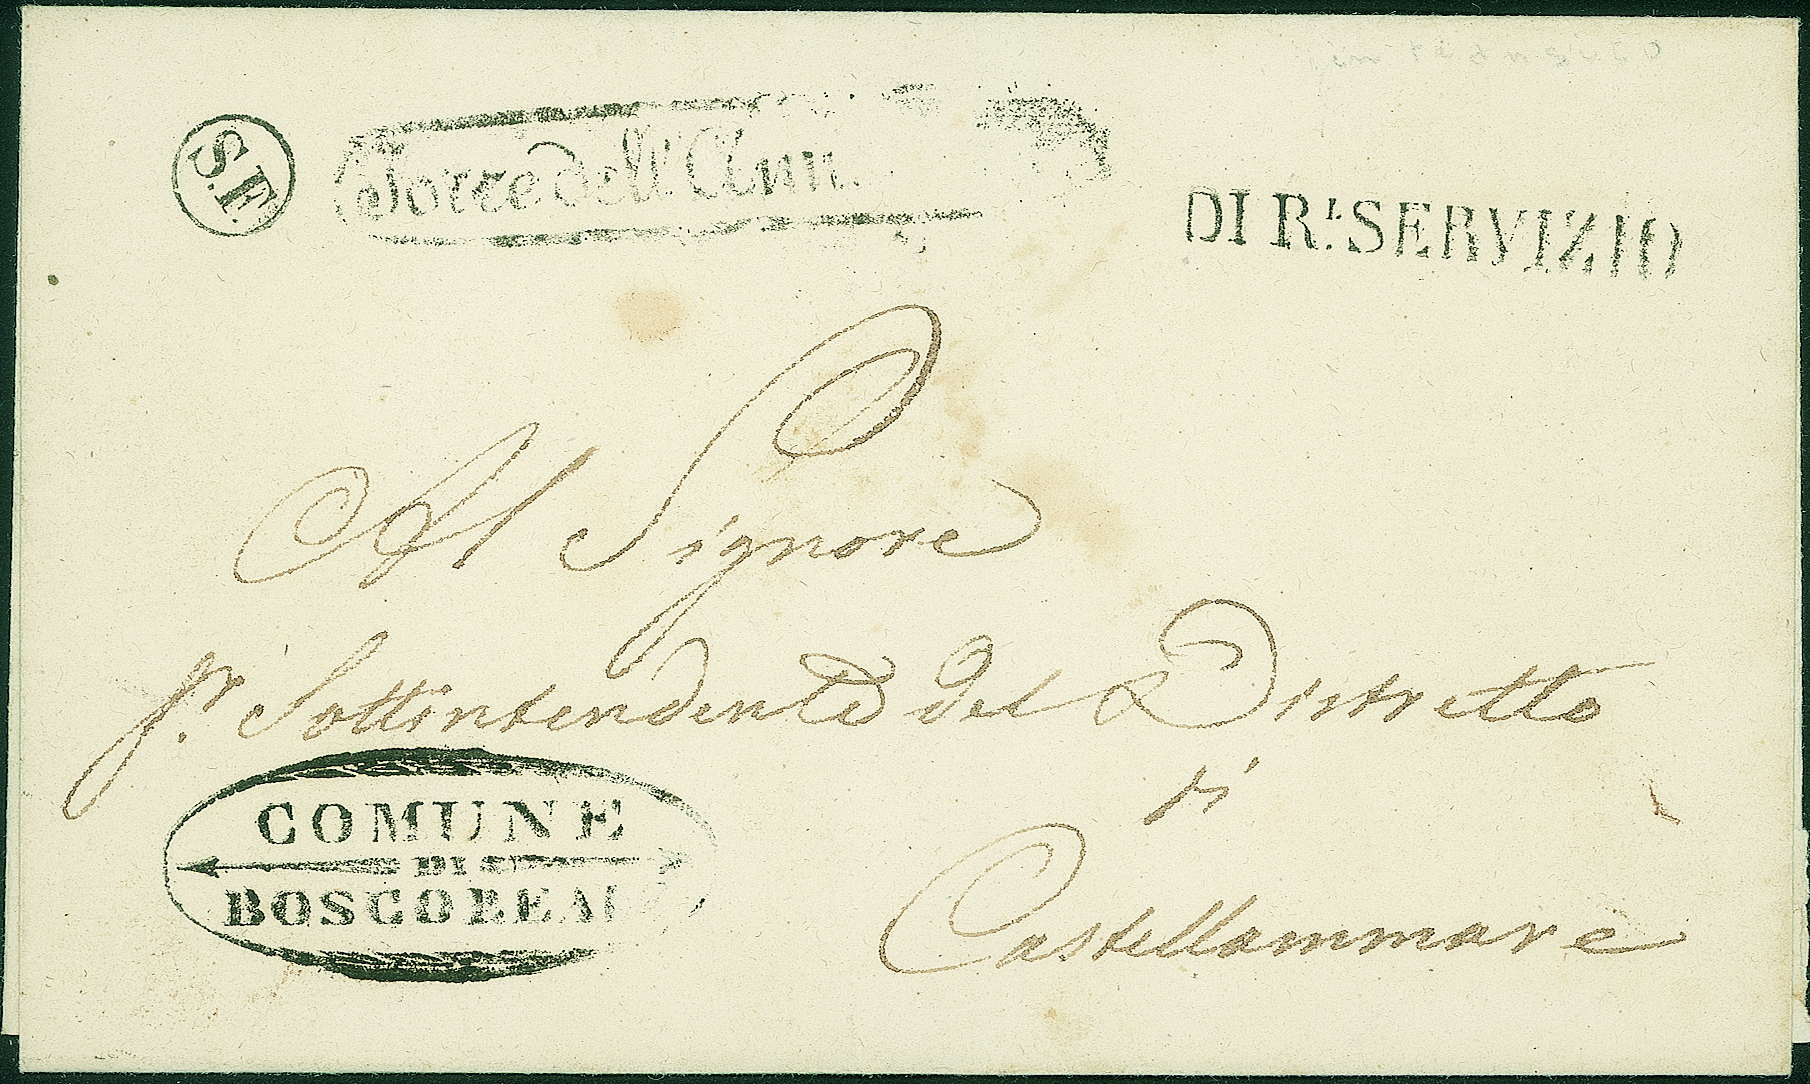 S.F.
Torre dell'Ann
DI R.L SERVIZIO
Al Signore
Sottintendente del Distretto
di
Castellammare
COMUNE
DI
BOSCOREA